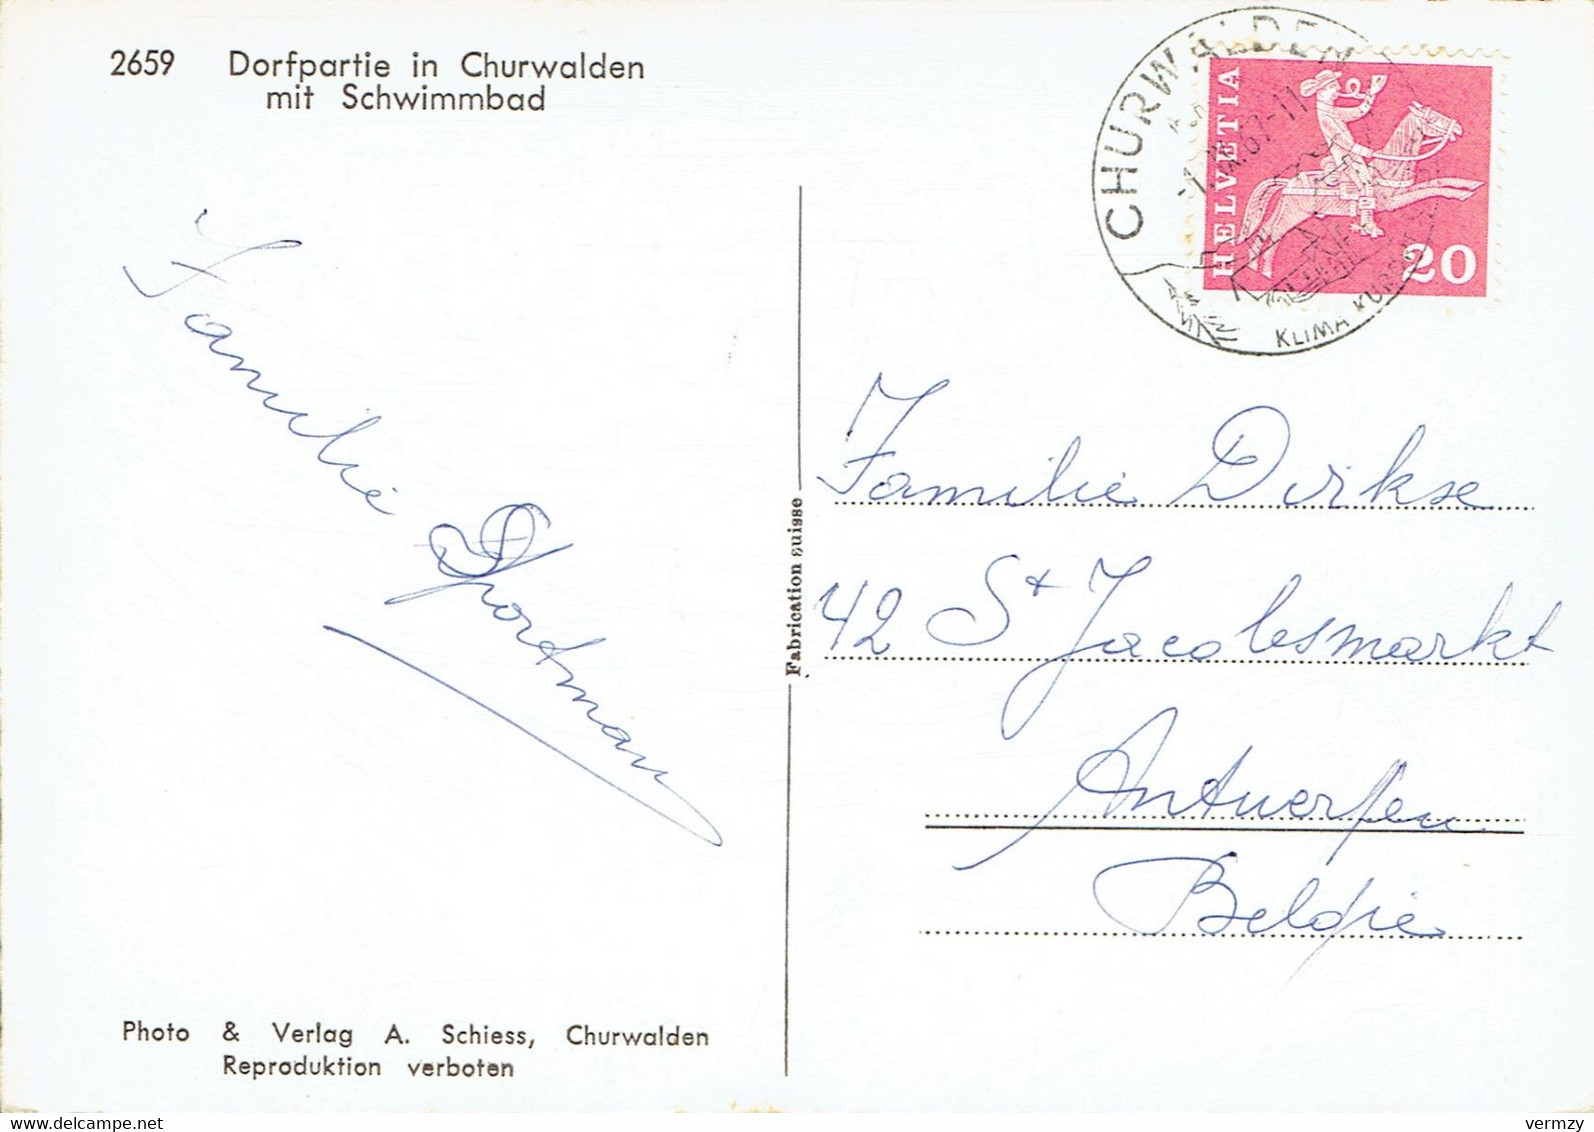 2659 Dorfpartie in Churwalden
mit Schwimmbad
CHURWALDEN
67-11
KLIMA KUR
HELVETIA
20
Familie
Sportman
Fabrication suisse
Familie Dirkse
42 St Jacobsmarkt
Antwerpen
Belgie
Photo & Verlag A. Schiess, Churwalden
Reproduktion verboten
www.delcampe.net
vermzy